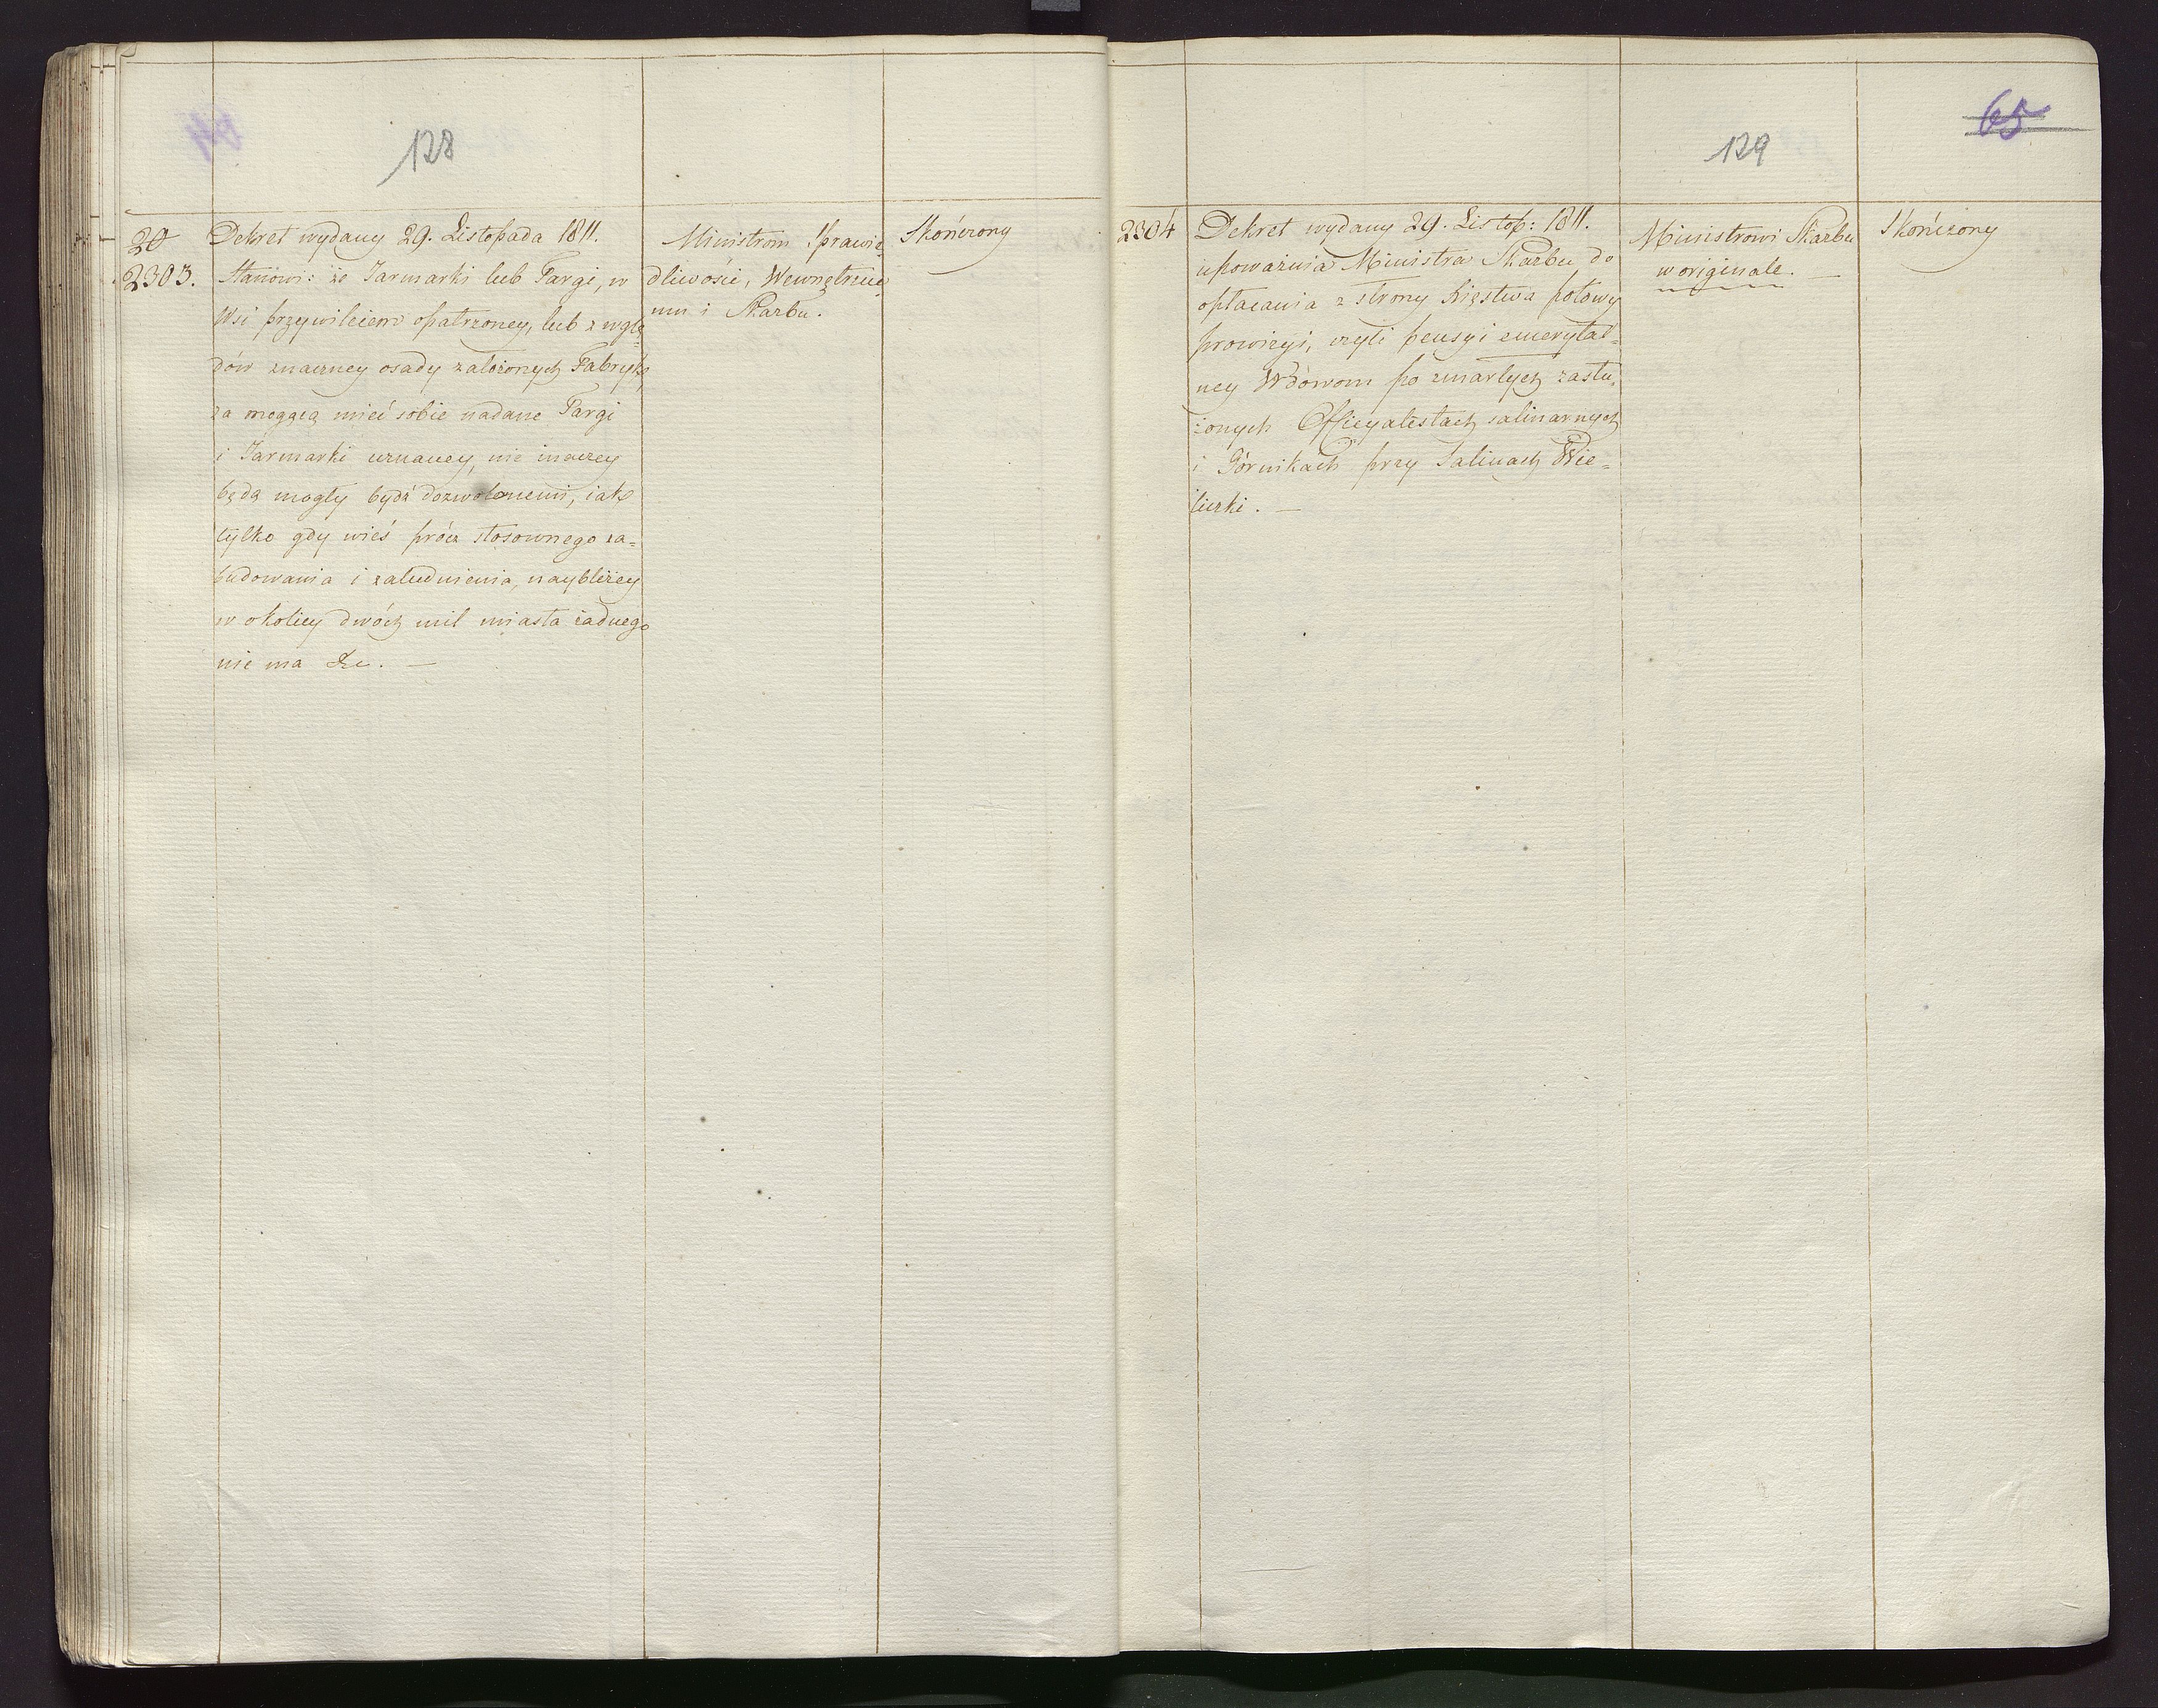 128
20
2303.
Dekret wydany 29. Listopada 1811.
Stanowi: że Jarmarki lub Targi, w
Wsi przywileiem opatrzoney, lub z wglę
dów znaczney osady założonych Fabryk,
za mogącą mieć sobie nadane Targi
i Jarmarki uznaney, nie inaczey
będą mogły bydź dozwolonemi, iak
tylko gdy wieś prócz stosownego za=
budowania i zaludnienia, naybliżey
w okolicy dwóch mil miasta żadnego
nie ma &c. —
Ministrom Sprawie
dliwości, Wewnętrzne
mu i Skarbu.
Skończony
65
129
2304
Dekret wydany 29. Listop: 1811.
upoważnia Ministra Skarbu do
opłacania z strony Xięstwa połowy
prowizyi, czyli pensyi emerytal=
ney Wdowom po zmarłych zasłu,
żonych Officyalistach salinarnych
i Górnikach przy Salinach Wie=
liczki. —
Ministrowi Skarbu
w originale. —
Skończony